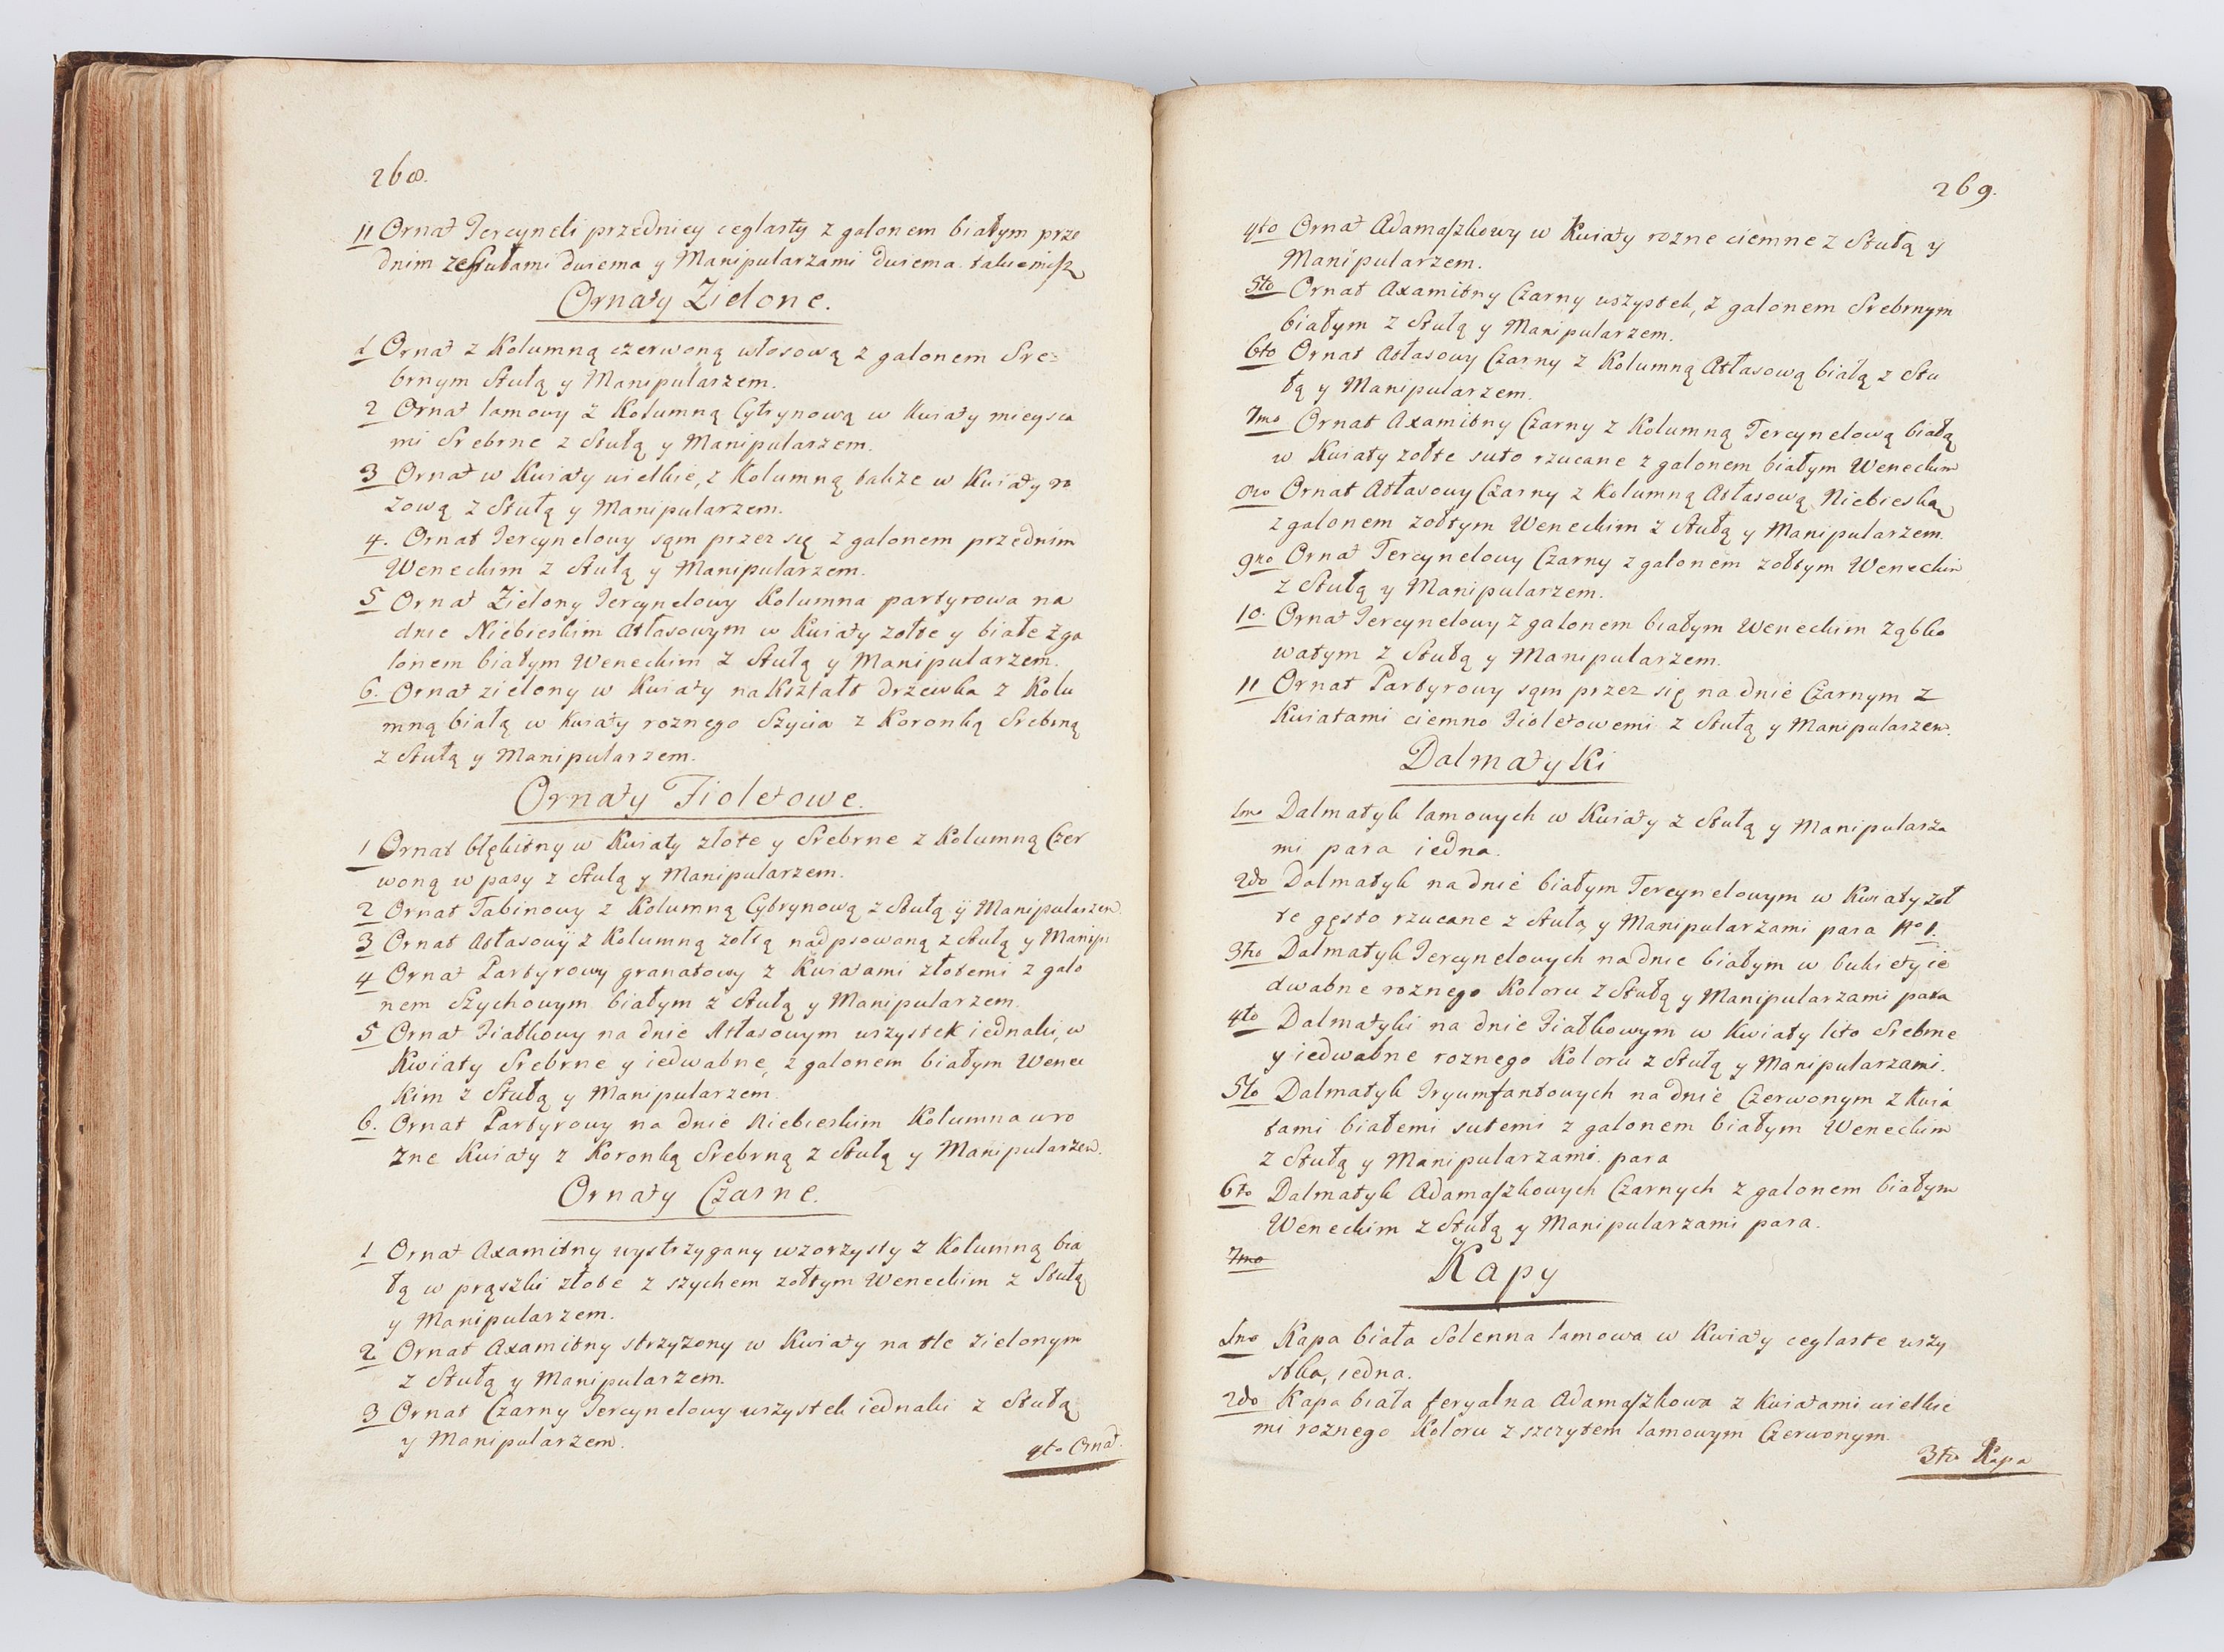 268.
11 Ornat Tercyneli przedniey ceglasty z galonem białym prze
dnim ze stułami dwiema y Manipularzami dwiema takiemisz
Ornaty Zielone.
1 Ornat z Kolumną czerwoną włosową z galonem Sre=
brnym Stułą y Manipularzem.
2 Ornat lamowy z Kolumną Cytrynową w Kwiaty mieysca
mi Srebrne z Stułą y Manipularzem.
3 Ornat w Kwiaty wielkie, z Kolumną także w Kwiaty ro
zową z Stułą y Manipularzem.
4. Ornat Tercynelowy sąm przez się z galonem przednim
Weneckim z Stułą y Manipularzem.
5 Ornat Zielony Tercynelowy Kolumna partyrowa na
dnie Niebieskim Atłasowym w Kwiaty zołte y białe z ga
lonem białym Weneckim z Stułą y Manipularzem.
6. Ornat zielony w Kwiaty na Kształt drzewka z Kolu
mną białą w Kwiaty roznego Szycia z Koronką Srebrną
z Stułą y Manipularzem.
Ornaty Fioletowe.
1 Ornat błękitny w Kwiaty złote y Srebrne z Kolumną Czer
woną w pasy z Stułą y Manipularzem.
2 Ornat Tabinowy z Kolumną Cytrynową z Stułą ÿ Manipularzem.
3 Ornat Atłasowÿ z Kolumną zołtą nadpsowaną z Stułą y Manip:
4 Ornat Partyrowy granatowy z Kwiatami złotemi z galo
nem Szychowym białym z Stułą y Manipularzem.
5 Ornat Fiałkowy na dnie Atłasowym wszystek iednaki, w
Kwiaty Srebrne y iedwabne, z galonem białym Wenec
kim z Stułą y Manipularzem.
6. Ornat Partyrowy na dnie Niebieskim Kolumna w ro
zne Kwiaty z Koronką Srebrną z Stułą y Manipularzem.
Ornaty Czarne.
1 Ornat Axamitny wystrzygany wzorzysty z Kolumną bia
łą w prąszki złote z szychem zołtym Weneckim z Stułą
y Manipularzem.
2 Ornat Axamitny strzyzony w Kwiaty na tle zielonym
z Stułą y Manipularzem.
3 Ornat Czarny Tercynelowy wszystek iednaki z Stułą
y Manipularzem.
4to Ornat.
269.
4to Ornat Adamaszkowy w Kwiaty rozne ciemne z Stułą y
Manipularzem.
5to Ornat Axamitny Czarny wszystek, z galonem Srebrnym
białym z Stułą y Manipularzem.
6to Ornat Atłasowy Czarny z Kolumną Atłasową białą z Stu
łą y Manipularzem.
7mo Ornat Axamitny Czarny z Kolumną Tercynelową białą
w Kwiaty zołte suto rzucane z galonem białym Weneckim
8vo Ornat Atłasowy Czarny z Kolumną Atłasową Niebieską
z galonem zołtym Weneckim z Stułą y Manipularzem.
9no Ornat Tercynelowy Czarny z galonem zołtym Weneckim
z Stułą y Manipularzem.
10. Ornat Tercynelowy z galonem białym Weneckim Ząbko
watym z Stułą y Manipularzem.
11 Ornat Partyrowy sąm przez się na dnie Czarnym z
Kwiatami ciemno Fioletowemi z Stułą y Manipularzem.
Dalmatyki
1mo Dalmatyk lamowych w Kwiaty z Stułą y Manipularza
mi para iedna.
2do Dalmatyk na dnie białym Tercynelowym w Kwiaty zoł
te gęsto rzucane z Stułą y Manipularzami para Nro 1.
3tio Dalmatyk Tercynelowych na dnie białym w bukiety ie
dwabne roznego Koloru z Stułą y Manipularzami para
4to Dalmatyki na dnie Fiałkowym w Kwiaty lito Srebrne
y iedwabne roznego Koloru z Stułą y Manipularzami.
5to Dalmatyk Tryumfantowych na dnie Czerwonym z Kwia
tami białemi sutemi z galonem białym Weneckim
z Stułą y Manipularzami. para
6to Dalmatyk Adamaszkowych Czarnych z galonem białym
Weneckim z Stułą y Manipularzami para.
7mo
Kapy
1mo Kapa biała Solenna lamowa w Kwiaty ceglaste wszy
stka, iedna.
2do Kapa biała feryalna Adamaszkowa z Kwiatami wielkie
mi roznego Koloru z szczytem lamowym Czerwonym.
3tio Kapa